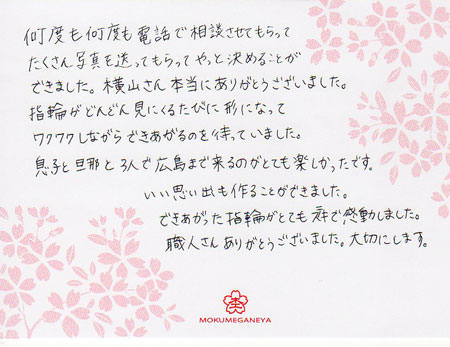 何度も何度も電話で相談させてもらって
たくさん写真を送ってもらってやっと決めることが
できました。横山さん本当にありがとうございました。
指輪がどんどん見にくるたびに形になって
ワクワクしながらできあがるのを待っていました。
息子と旦那と3人で広島まで来るのがとても楽しかったです。
いい思い出も作ることができました。
できあがった指輪がとても素敵で感動しました。
職人さんありがとうございました。大切にします。
MOKUMEGANEYA